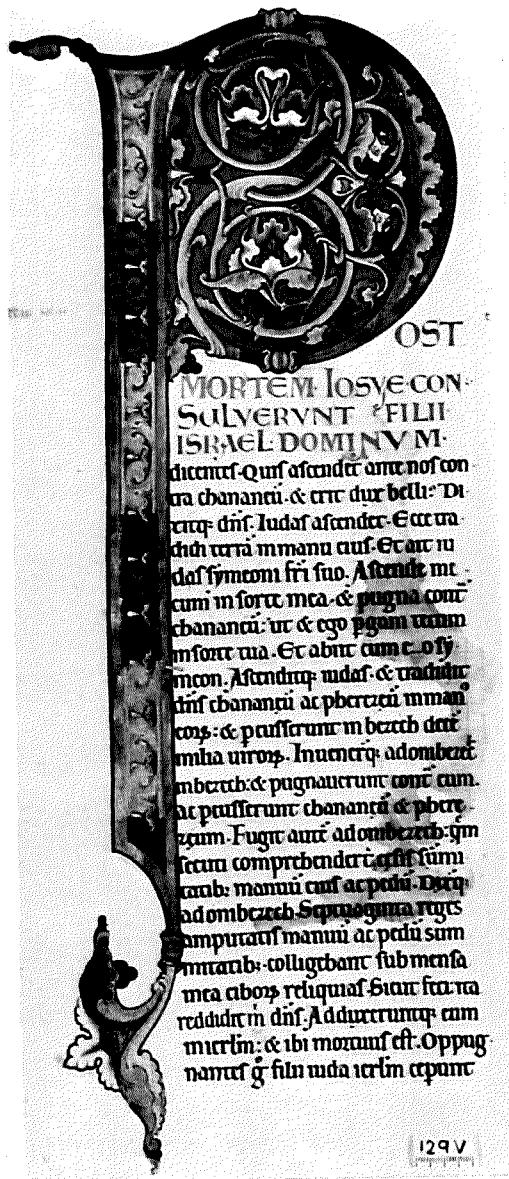 POST
MORTEM· IOSVE· CON·
SVLVERVNT FILII
ISRAEL· DOMINVM·
dicentes· Quis ascendet ante nos con
tra chananeū· & erit dux belli? Di
xitq; dn̄s. Iudas ascendet· Ecce tra
didi terrā in manu eius· Et ait iu
das symeoni fr̄i suo. Ascende me
cum in sorte mea· & pugna cont̄
chananeū: ut & ego pgam tecum
in sorte tua. Et abiit cum eo sy
meon. Ascenditq; iudas· & tradidit
dn̄s chananeū ac pherezeū in man᷒
eoꝝ: & pcusserunt in bezech decē
milia uiroꝝ. Inuenerq; adombezec̄
in bezech: & pugnauerunt cont̄ eum.
ac pcusserunt chananeū & phere
zeum· Fugit autē adombezech: qm̄
secuti comprehenderē cesis sūmi
tatib; manuū eius ac pedū· Dixitq;
adombezech· Septuaginta reges
amputatis manuū ac pedū sum
mitatib; colligebant sub mensa
mea ciboꝝ reliquias· Sicut feci: ita
reddidit m̄ dn̄s. Adduxeruntq; eum
in ierlm̄: & ibi mortuus est. Oppug
nantes g° filii iuda ierlm̄ ceperunt
129V